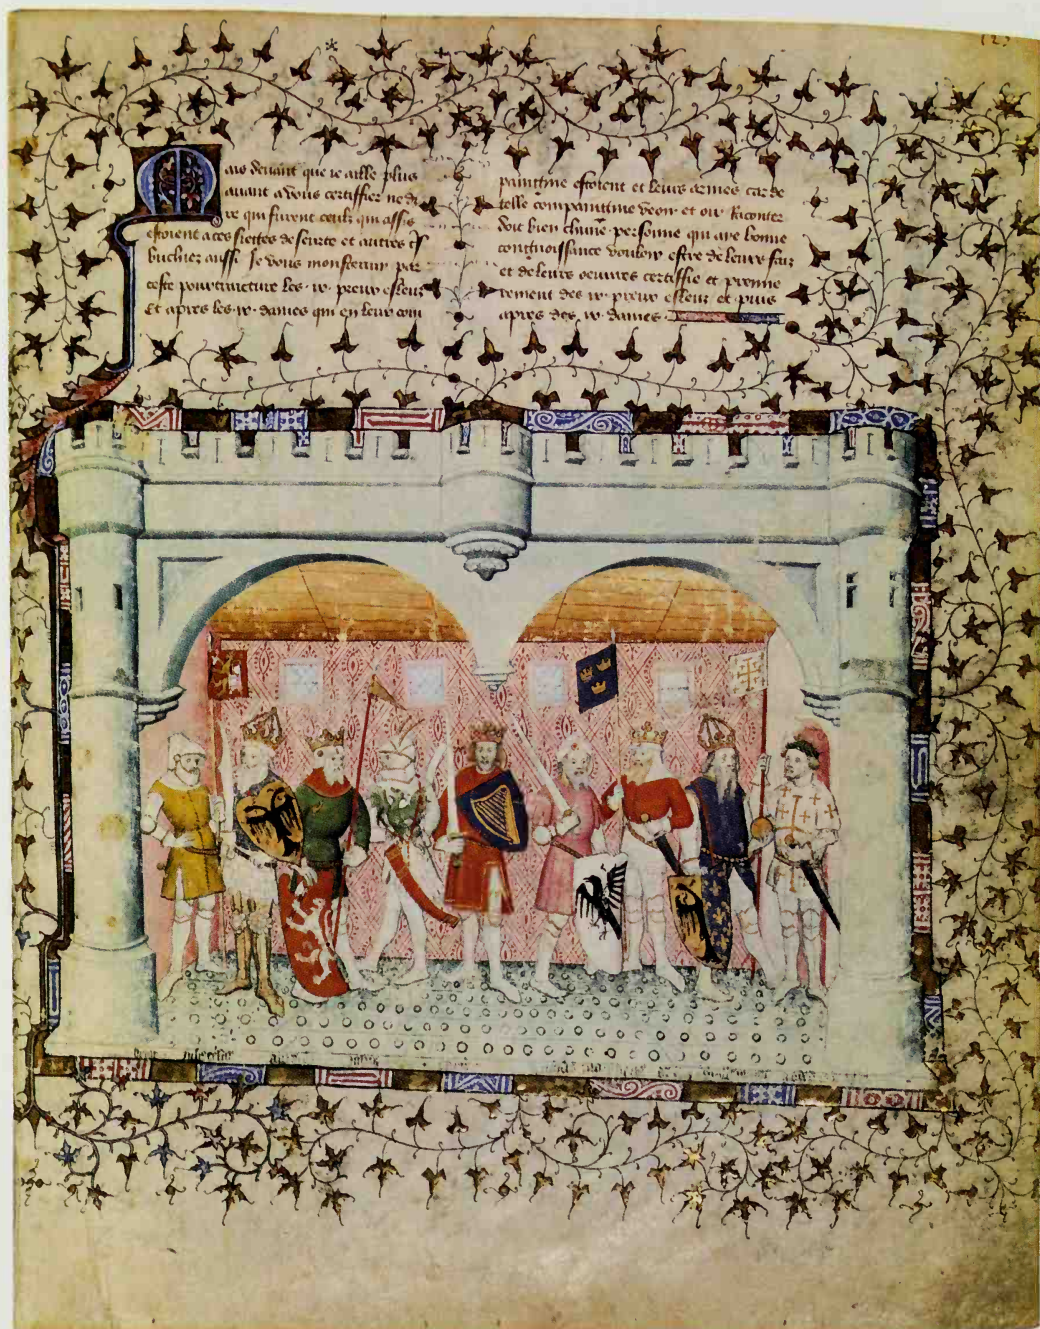 Mais devant que ie aille plus
avant a vous certiffier ne di
re qui furent ceulz qui assis
estoient a ces siettes de seurte et autres
buchiez aussi Je vous monsterray par
ceste pourtraicture les .ix. preux esleuz
Et apres les .ix. dames qui en leur com
paintine estoient et leurs armes car de
telle compaintine veoir et oir raconter
doit bien chascune personne qui aye bonne
congnoissance vouloir estre de leurs faiz
et de leurs oeuvres certiffie et premie
rement des .ix. preux esleuz et puis
apres des .ix. dames